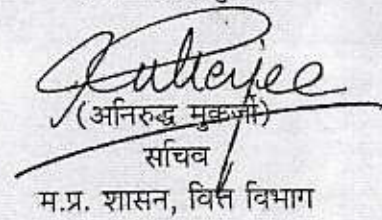 (अनिरुद्ध मुकर्जी)
सचिव
म.प्र. शासन, वित्त विभाग